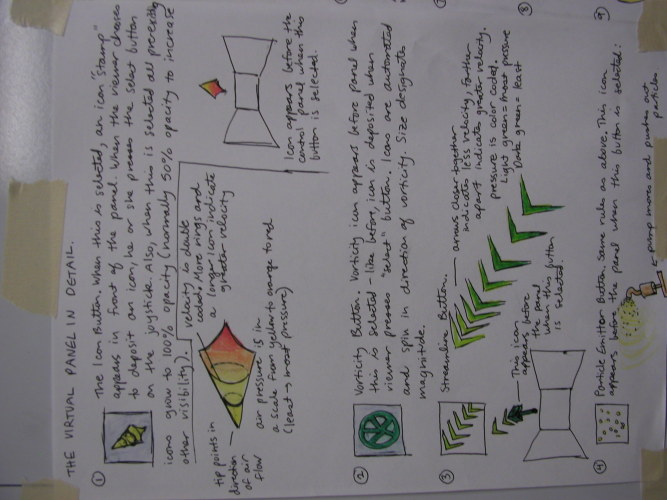 THE VIRTUAL PANEL IN DETAIL.
① The Icon Button. When this is selected, an icon "stamp"
appears in front of the panel. When the viewer chooses
to deposit an icon, he or she presses the select button
on the joystick. Also, when this is selected all preexisting
icons grow to 100% opacity (normally 50% opacity to increase
other visibility).
velocity is double
coded. More rings and
a longer icon indicate
greater velocity
tip points in
direction
of air
flow
air pressure is in
a scale from yellow to orange to red
(least → most pressure)
Icon appears before the
control panel when this
button is selected.
② Vorticity Button. Vorticity icon appears before panel when
this is selected - like before, icon is deposited when
viewer presses "select" button. Icons are automated
and spin in direction of vorticity. Size designates
magnitude.
③ Streamline Button.
arrows closer together
indicate less velocity, farther
apart indicate greater velocity.
pressure is color coded.
Light green = most pressure
Dark green = least
This icon
appears before
the panel
when this button
is selected.
④ Particle Emitter Button. Same rules as above. This icon
appears before the panel when this button is selected:
pump moves and pushes out
particles
⑧
⑨